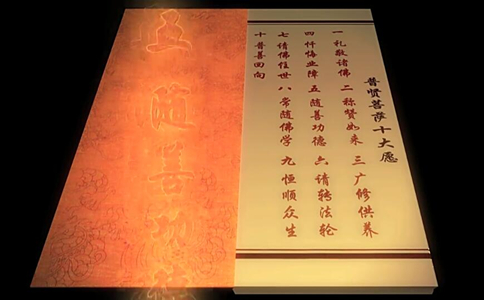 普贤菩萨十大愿
一礼敬诸佛 二称赞如来 三广修供养
四忏悔业障 五随善功德 六请转法轮
七请佛住世 八常随佛学 九恒顺众生
十普善回向
五 随善功德